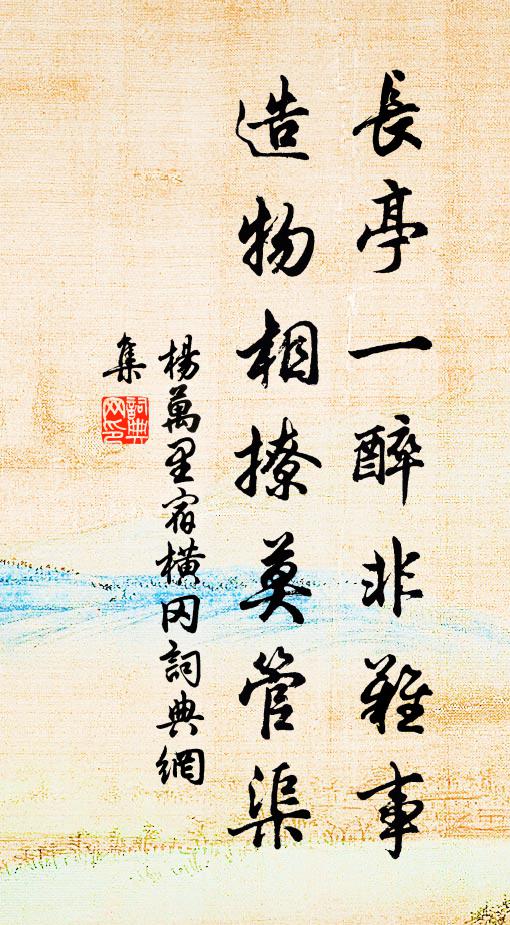 長亭一醉非難事
造物相撩莫管渠
楊萬里宿橫冈詞典網
集
詞典
网印